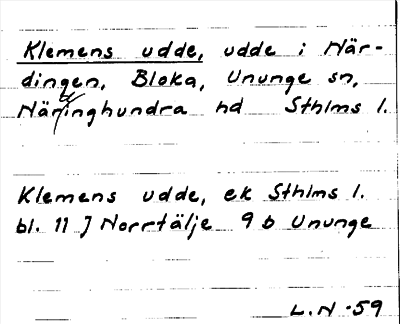 Klemens udde, udde i När-
dingen, Bloka, Ununge sn,
Närdinghundra hd Sthlms l.
Klemens udde, ek Sthlms l.
bl. 11 J Norrtälje 9 b Ununge
L.N -59